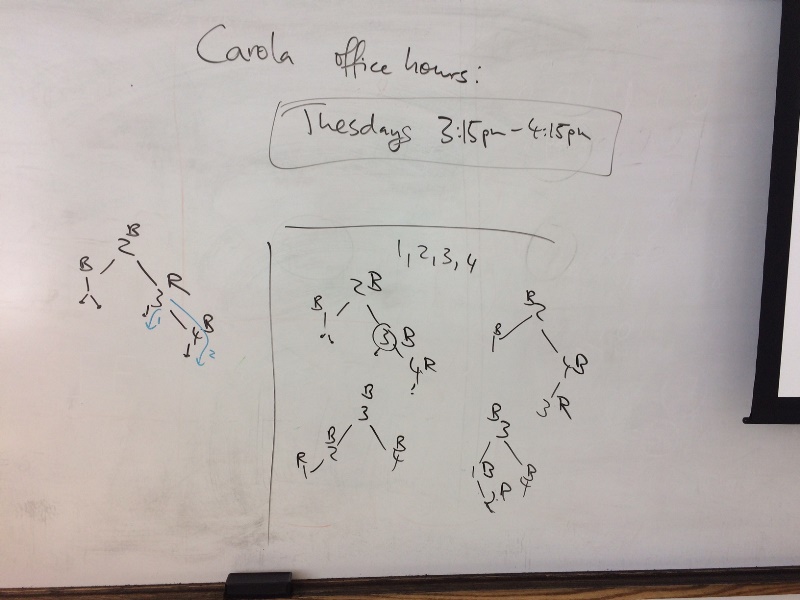 Carola office hours:
Tuesdays 3:15pm - 4:15pm
1, 2, 3, 4
B
2
B
R
3
1
4 B
2
2 B
B
1
3 B
4 R
B
2
B
1
4 B
3 R
B
3
B
2
B
4
R
1
B
3
1 B
B
4
2 R